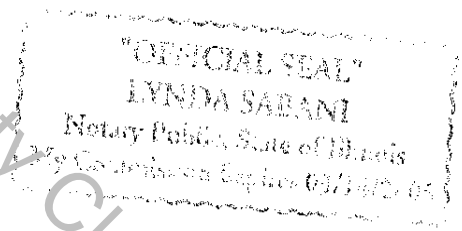 "OFFICIAL SEAL"
LYNDA SABANI
Notary Public, State of Illinois
My Commission Expires